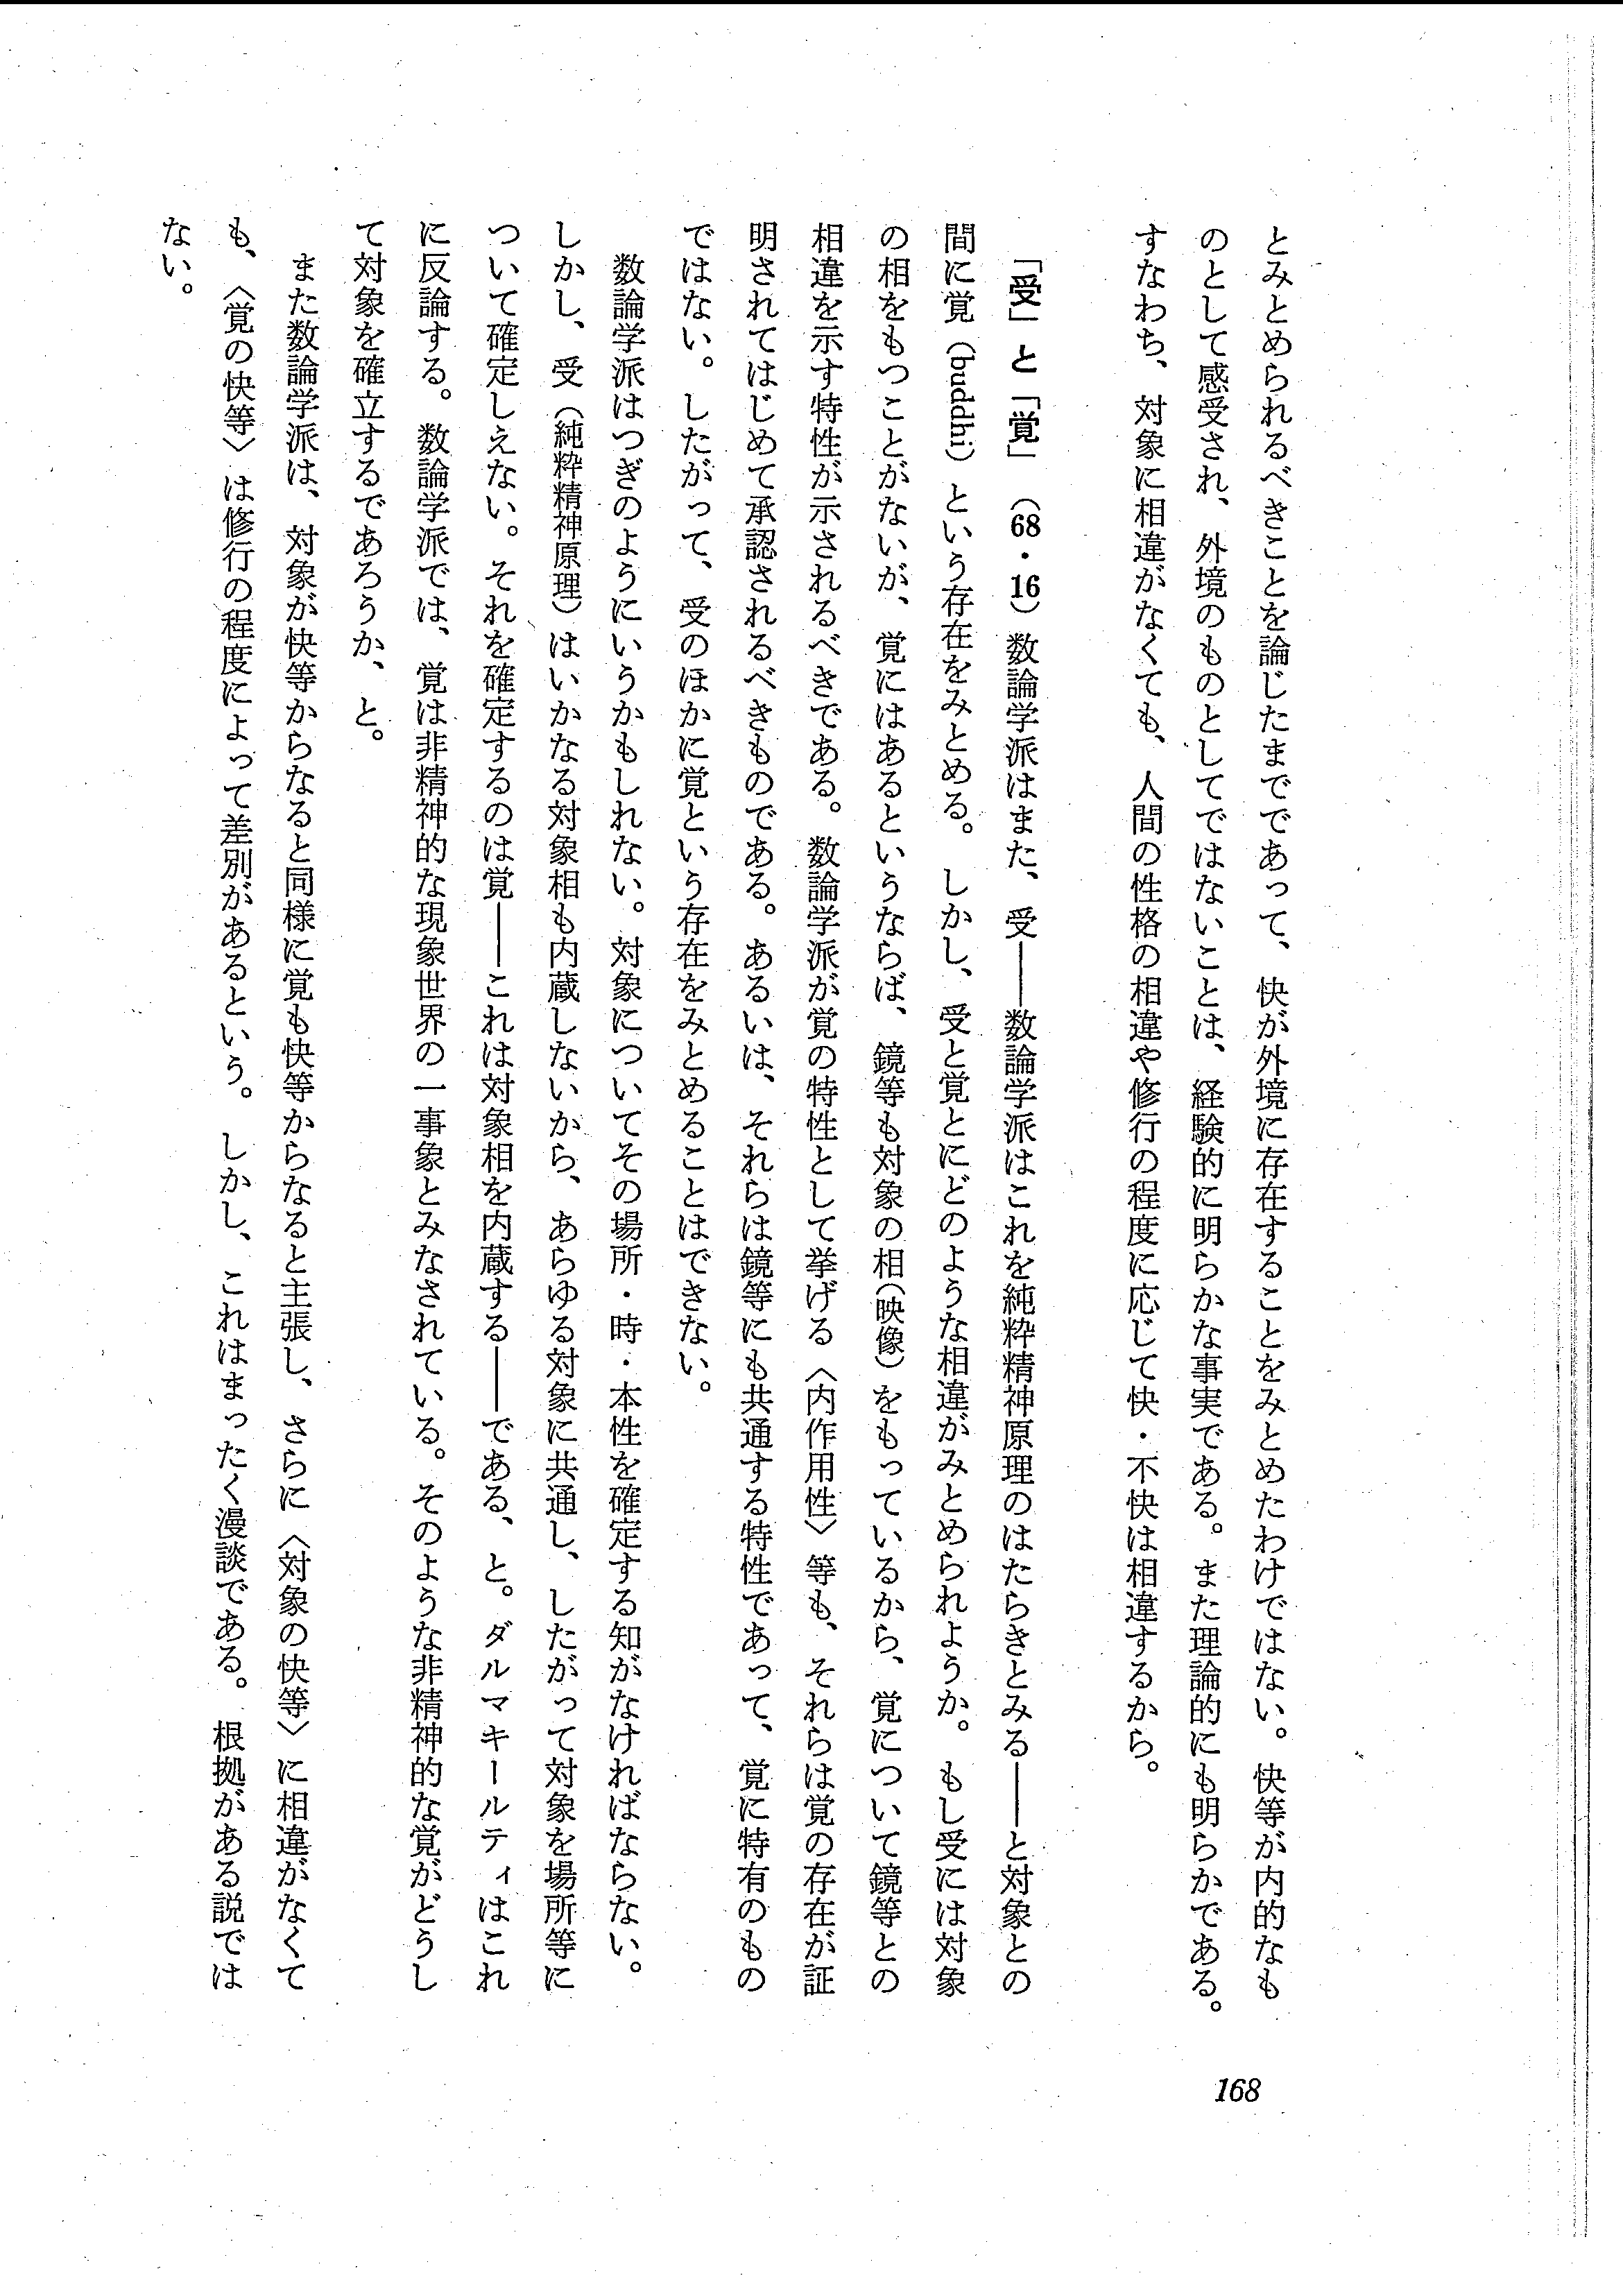 とみとめられるべきことを論じたまでであって、快が外境に存在することをみとめたわけではない。快等が内的なも
のとして感受され、外境のものとしてではないことは、経験的に明らかな事実である。また理論的にも明らかである。
すなわち、対象に相違がなくても、人間の性格の相違や修行の程度に応じて快・不快は相違するから。
「受」と「覚」（68・16）数論学派はまた、受——数論学派はこれを純粋精神原理のはたらきとみる——と対象との
間に覚（buddhi）という存在をみとめる。しかし、受と覚とにどのような相違がみとめられようか。もし受には対象
の相をもつことがないが、覚にはあるというならば、鏡等も対象の相（映像）をもっているから、覚について鏡等との
相違を示す特性が示されるべきである。数論学派が覚の特性として挙げる〈内作用性〉等も、それらは覚の存在が証
明されてはじめて承認されるべきものである。あるいは、それらは鏡等にも共通する特性であって、覚に特有のもの
ではない。したがって、受のほかに覚という存在をみとめることはできない。
数論学派はつぎのようにいうかもしれない。対象についてその場所・時・本性を確定する知がなければならない。
しかし、受（純粋精神原理）はいかなる対象相も内蔵しないから、あらゆる対象に共通し、したがって対象を場所等に
ついて確定しえない。それを確定するのは覚——これは対象相を内蔵する——である、と。ダルマキールティはこれ
に反論する。数論学派では、覚は非精神的な現象世界の一事象とみなされている。そのような非精神的な覚がどうし
て対象を確立するであろうか、と。
また数論学派は、対象が快等からなると同様に覚も快等からなると主張し、さらに〈対象の快等〉に相違がなくて
も、〈覚の快等〉は修行の程度によって差別があるという。しかし、これはまったく漫談である。根拠がある説では
ない。
168